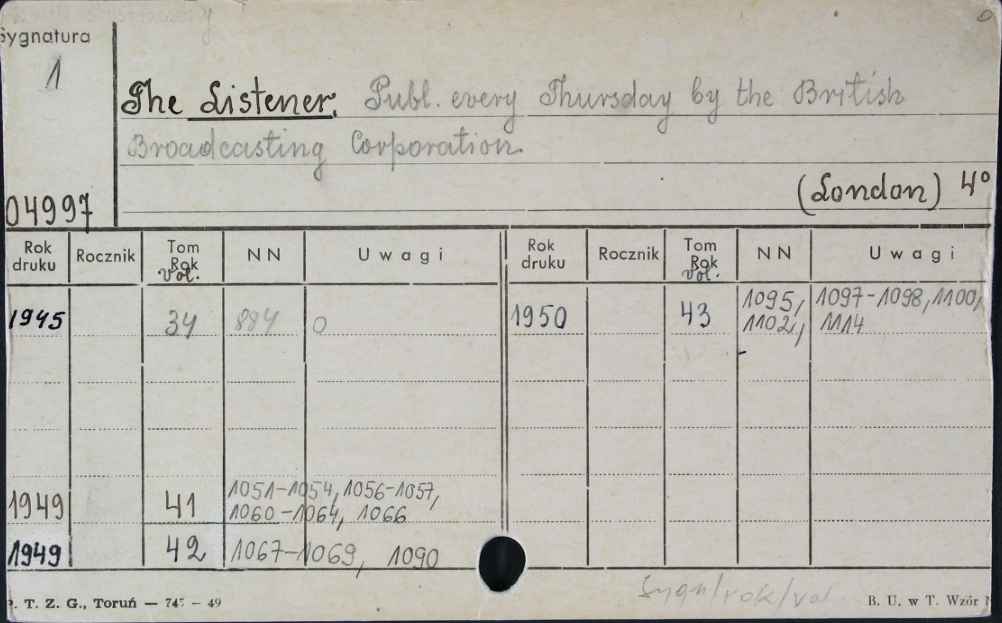 Sygnatura
1
The Listener. Publ. every Thursday by the British
Broadcasting Corporation.
(London) 4°
04997
Rok druku Rocznik Tom Rok Vol. NN Uwagi Rok druku Rocznik Tom Rok Vol. NN Uwagi
1945 34 884 0 1950 43 1095, 1097-1098, 1100,
1102, 1114
1949 41 1051-1054, 1056-1057,
1060-1064, 1066
1949 42 1067-1069, 1090
Sygn/rok/vol
P. T. Z. G., Toruń — 745 - 49 B. U. w T. Wzór